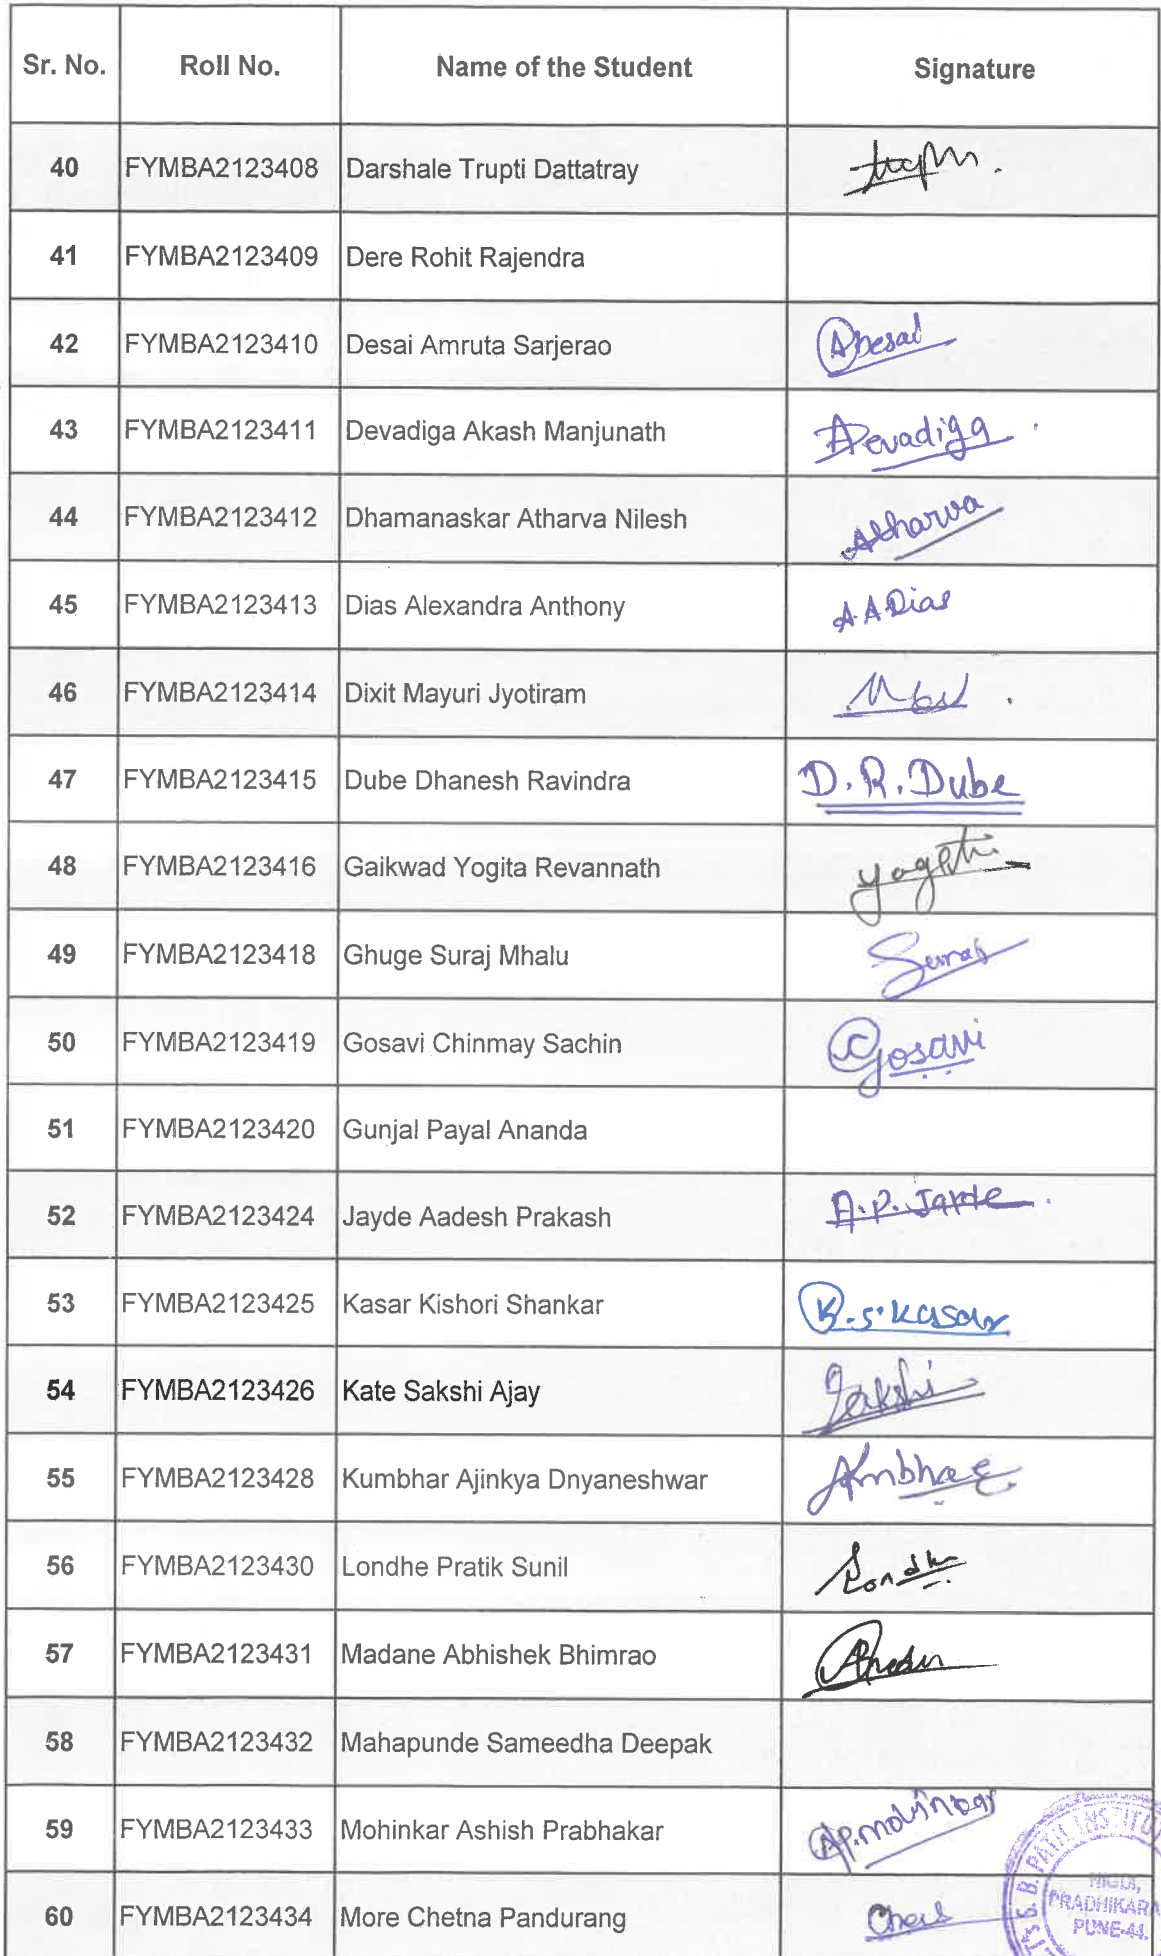 Sr. No. Roll No. Name of the Student Signature
40 FYMBA2123408 Darshale Trupti Dattatray
41 FYMBA2123409 Dere Rohit Rajendra
42 FYMBA2123410 Desai Amruta Sarjerao ADesai
43 FYMBA2123411 Devadiga Akash Manjunath ADevadiga
44 FYMBA2123412 Dhamanaskar Atharva Nilesh Atharva
45 FYMBA2123413 Dias Alexandra Anthony A A Dias
46 FYMBA2123414 Dixit Mayuri Jyotiram
47 FYMBA2123415 Dube Dhanesh Ravindra D. R. Dube
48 FYMBA2123416 Gaikwad Yogita Revannath
49 FYMBA2123418 Ghuge Suraj Mhalu Suraj
50 FYMBA2123419 Gosavi Chinmay Sachin CGosavi
51 FYMBA2123420 Gunjal Payal Ananda
52 FYMBA2123424 Jayde Aadesh Prakash A.P. Jayde
53 FYMBA2123425 Kasar Kishori Shankar K.S. Kasar
54 FYMBA2123426 Kate Sakshi Ajay Sakshi
55 FYMBA2123428 Kumbhar Ajinkya Dnyaneshwar
56 FYMBA2123430 Londhe Pratik Sunil Londhe
57 FYMBA2123431 Madane Abhishek Bhimrao
58 FYMBA2123432 Mahapunde Sameedha Deepak
59 FYMBA2123433 Mohinkar Ashish Prabhakar
60 FYMBA2123434 More Chetna Pandurang
S. B. PATIL INSTITU
NIGDI,
PRADHIKARA
PUNE-44.